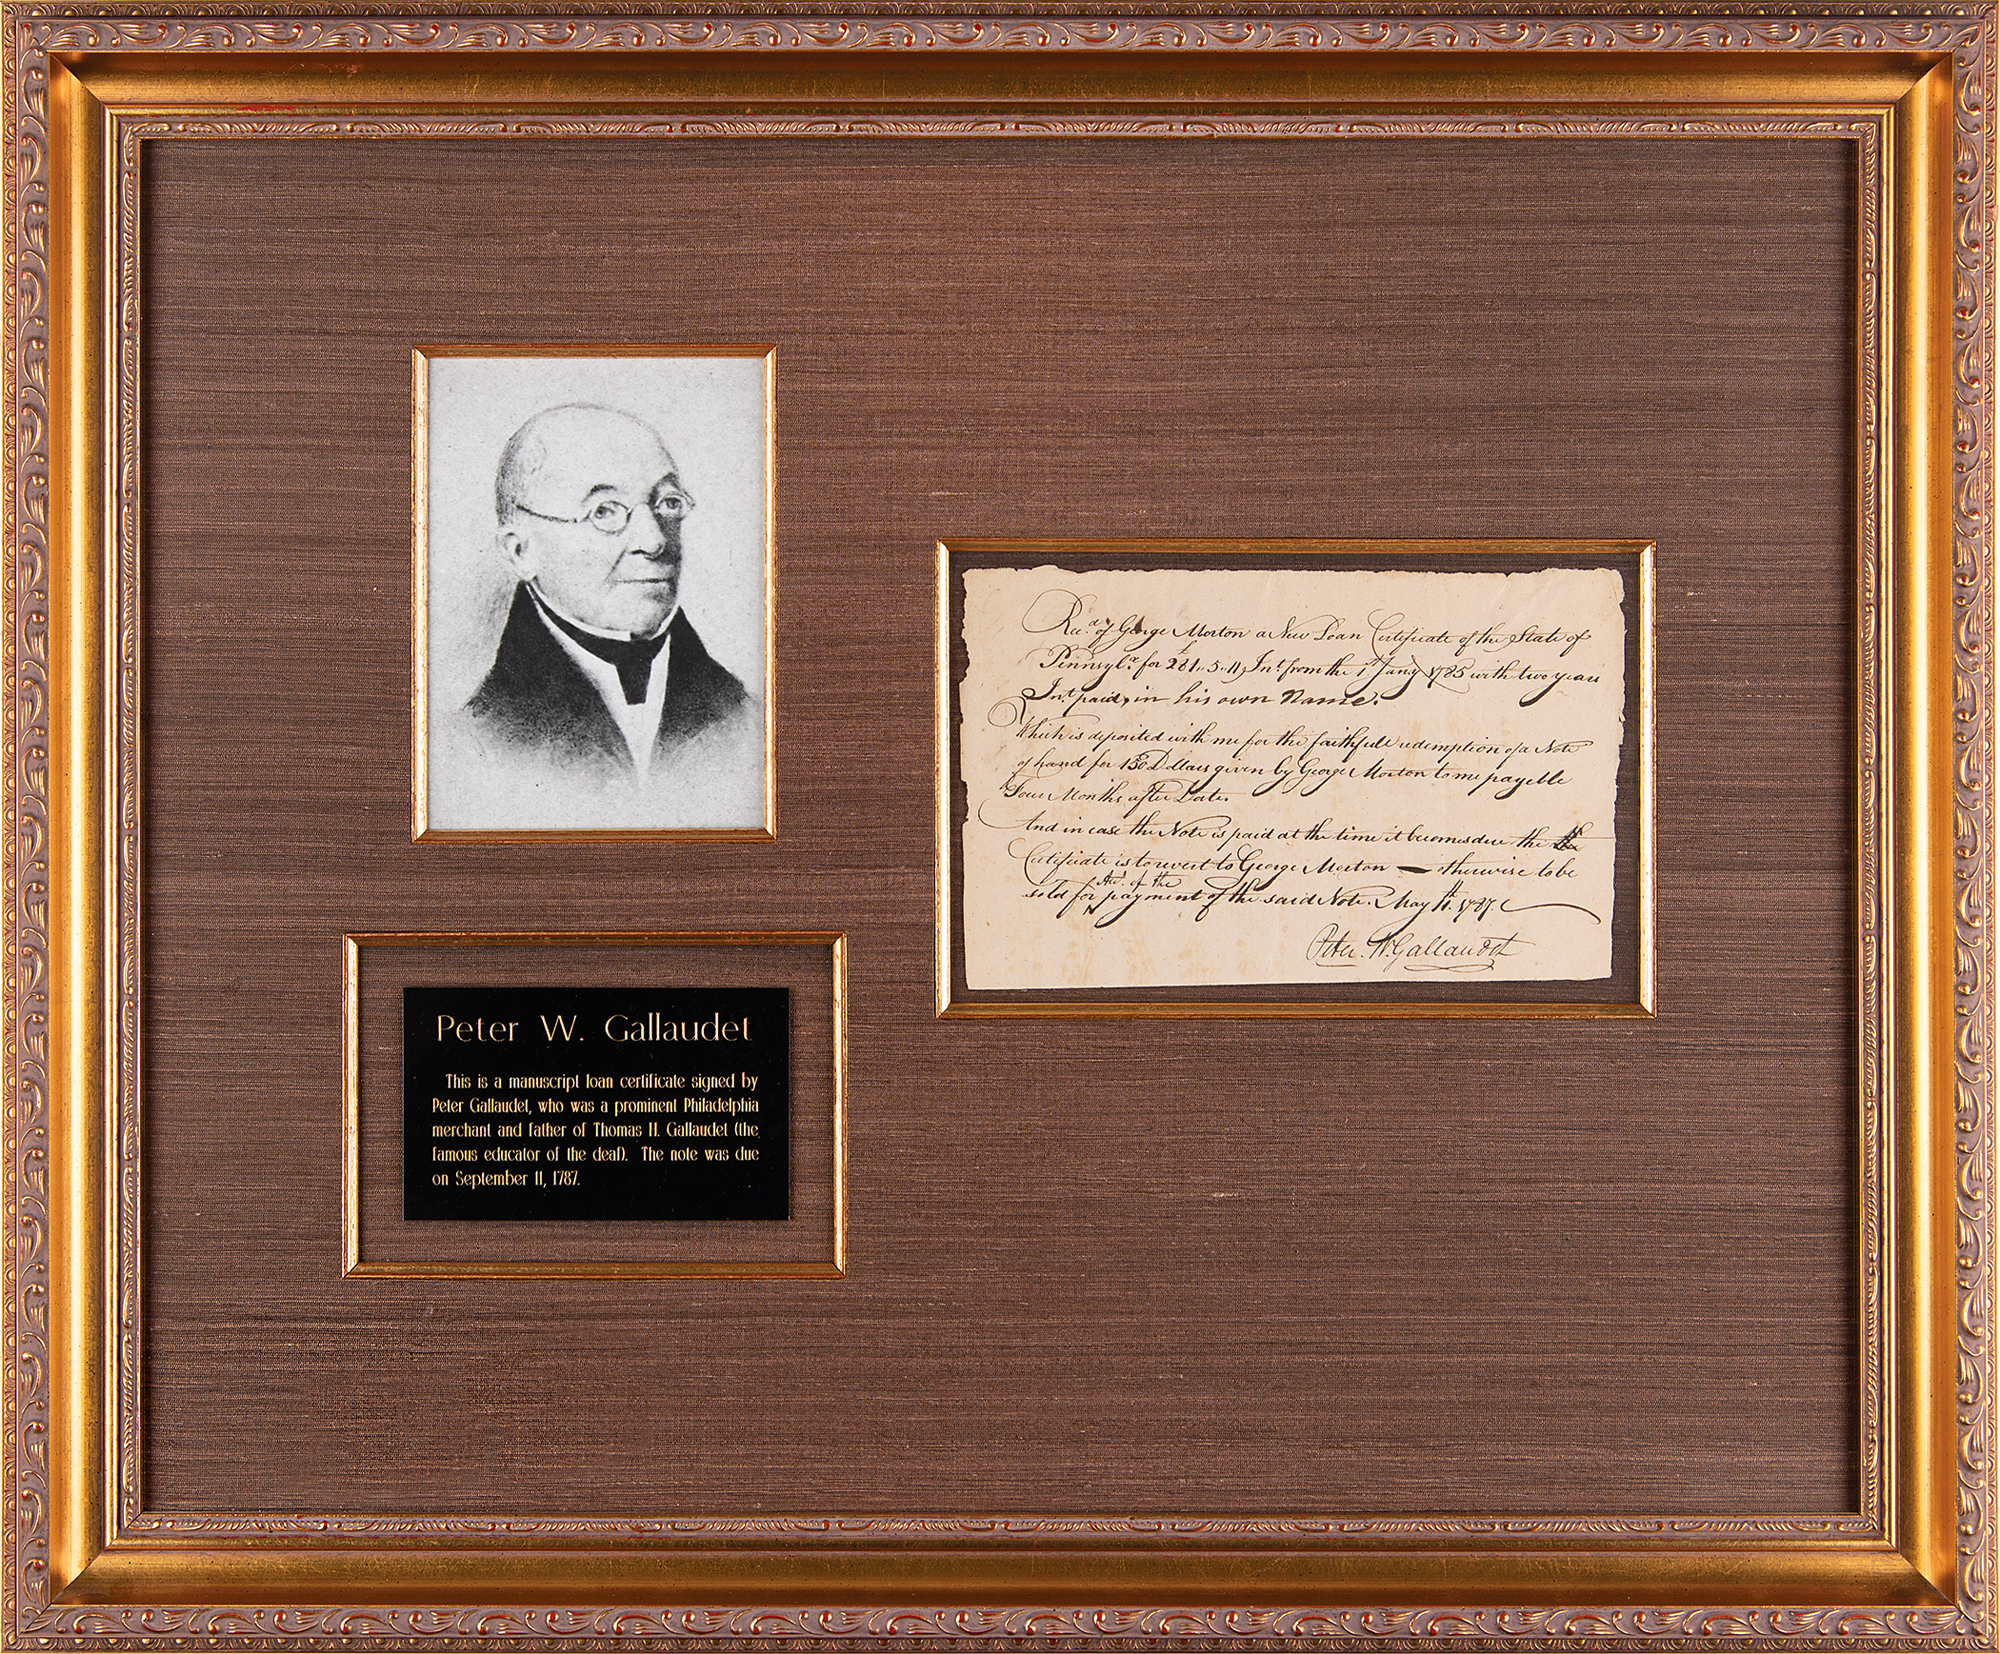 Peter W. Gallaudet
This is a manuscript loan certificate signed by
Peter Gallaudet, who was a prominent Philadelphia
merchant and father of Thomas H. Gallaudet (the
famous educator of the deaf). The note was due
on September 11, 1787.
Rec.d of George Morton a New Loan Certificate of the State of
Pennsyl.a for £281..5.11, Int. from the 1st Jany 1785 with two years
Int. paid, in his own Name.
Which is deposited with me for the faithfull redemption of a Note
of hand for 150 Dollars given by George Morton to me payable
Four Months after Date.
And in case the Note is paid at the time it becomes due the the
Certificate is to revert to George Morton — otherwise to be
sold for payment of the said Note. May 11. 1787.
Peter. W. Gallaudet